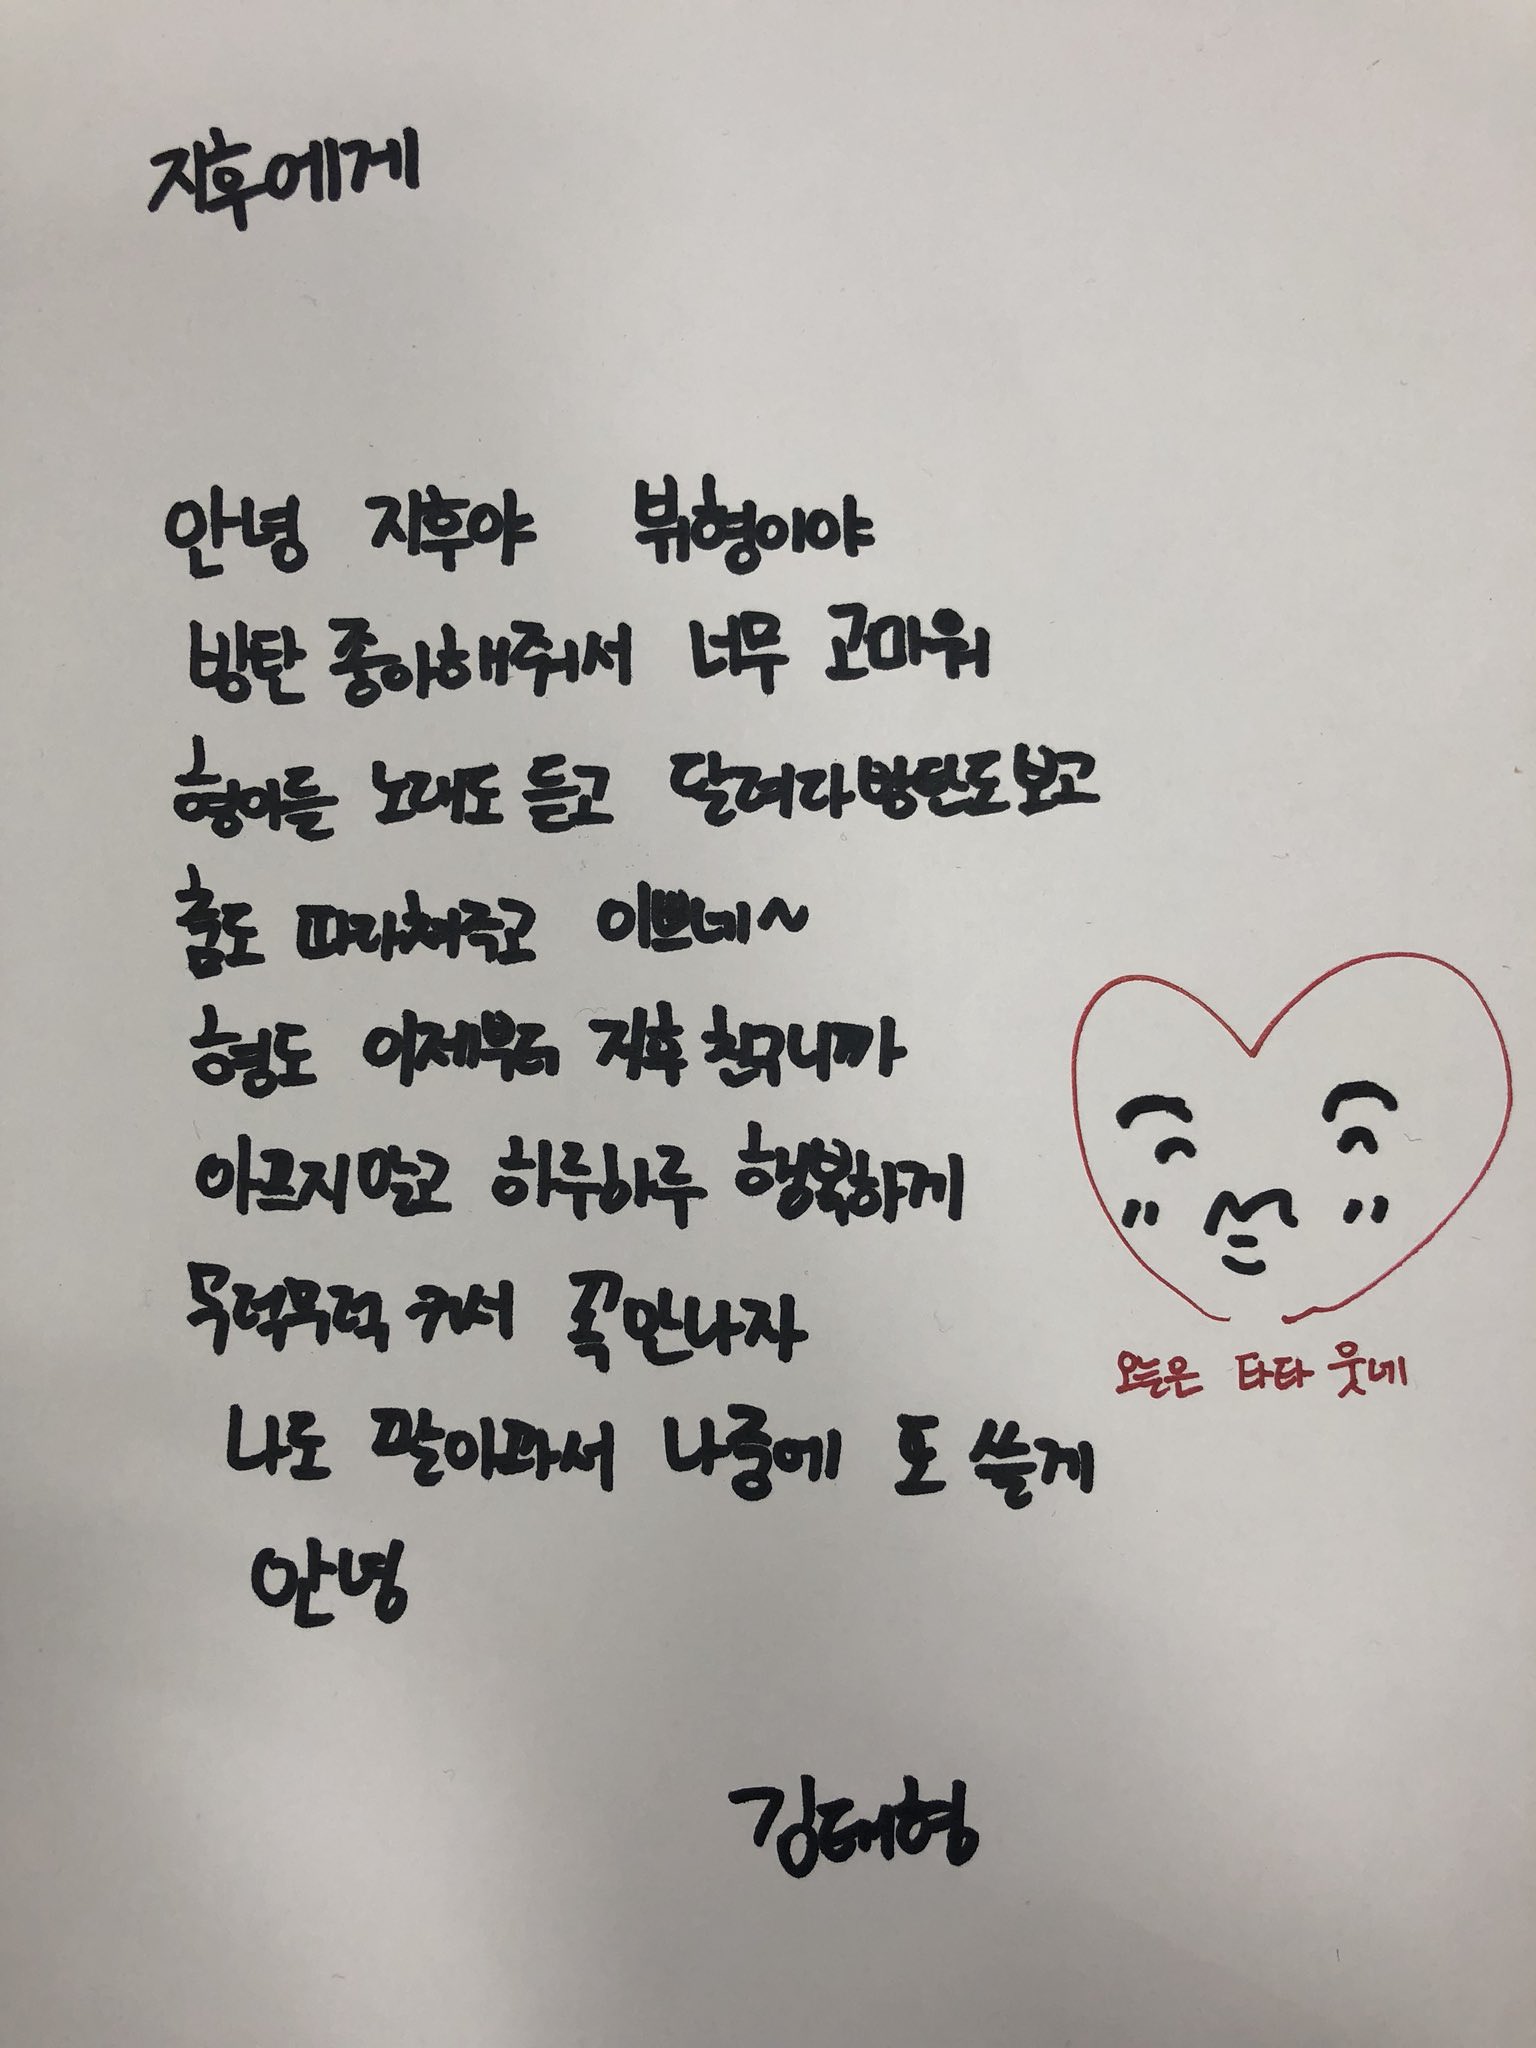 지후에게
안녕 지후야 뷔형이야
방탄 좋아해줘서 너무 고마워
형아들 노래도 듣고 달려라방탄도보고
춤도 따라춰주고 이쁘네~
형도 이제부터 지후 친구니까
아프지말고 하루하루 행복하게
무럭무럭 커서 꼭만나자
나도 팔아파서 나중에 또 쓸게
안녕
오늘은 타타 웃네
김태형